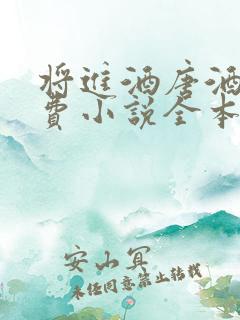 将进酒唐酒
费小说全本
安山宜
未经同意禁止转载